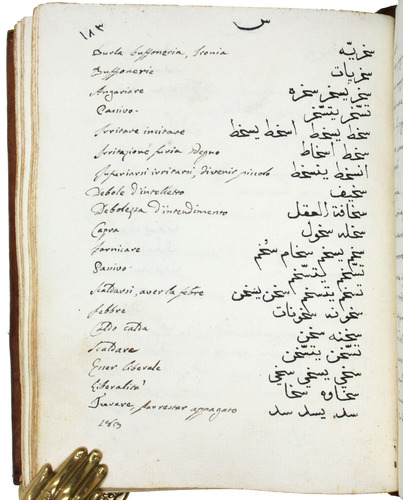 ١٨٣ س
Burla buffoneria, Ironia سخريّه
Buffonerie سخريات
Angariare سخر يسخر سخره
Passivo تسخّر يتسخّر
Irritare incitare سخط يسخط اسخط يسخط
Irritazione furia sdegno سخط اسخاط
Infuriarsi irritarsi, divenir piccolo انسخط ينسخط
Debole d'intelletto سخيف
Debolezza d'intendimento سخافة العقل
Capra سخله سخول
Fornicare سخم يسخم سخام سُخّم
Passivo تسخّم يتسخّم
Scaldarsi, aver la febre سخن يسخن
febbre سخونه سخونات
Caldo calda سخنه سخن
Scaldare تسخّن يتسخّن
Esser liberale سخي يسخي سخي
Liberalità سخاوه سخا
Turare, far restar appagato سد يسد سد
183